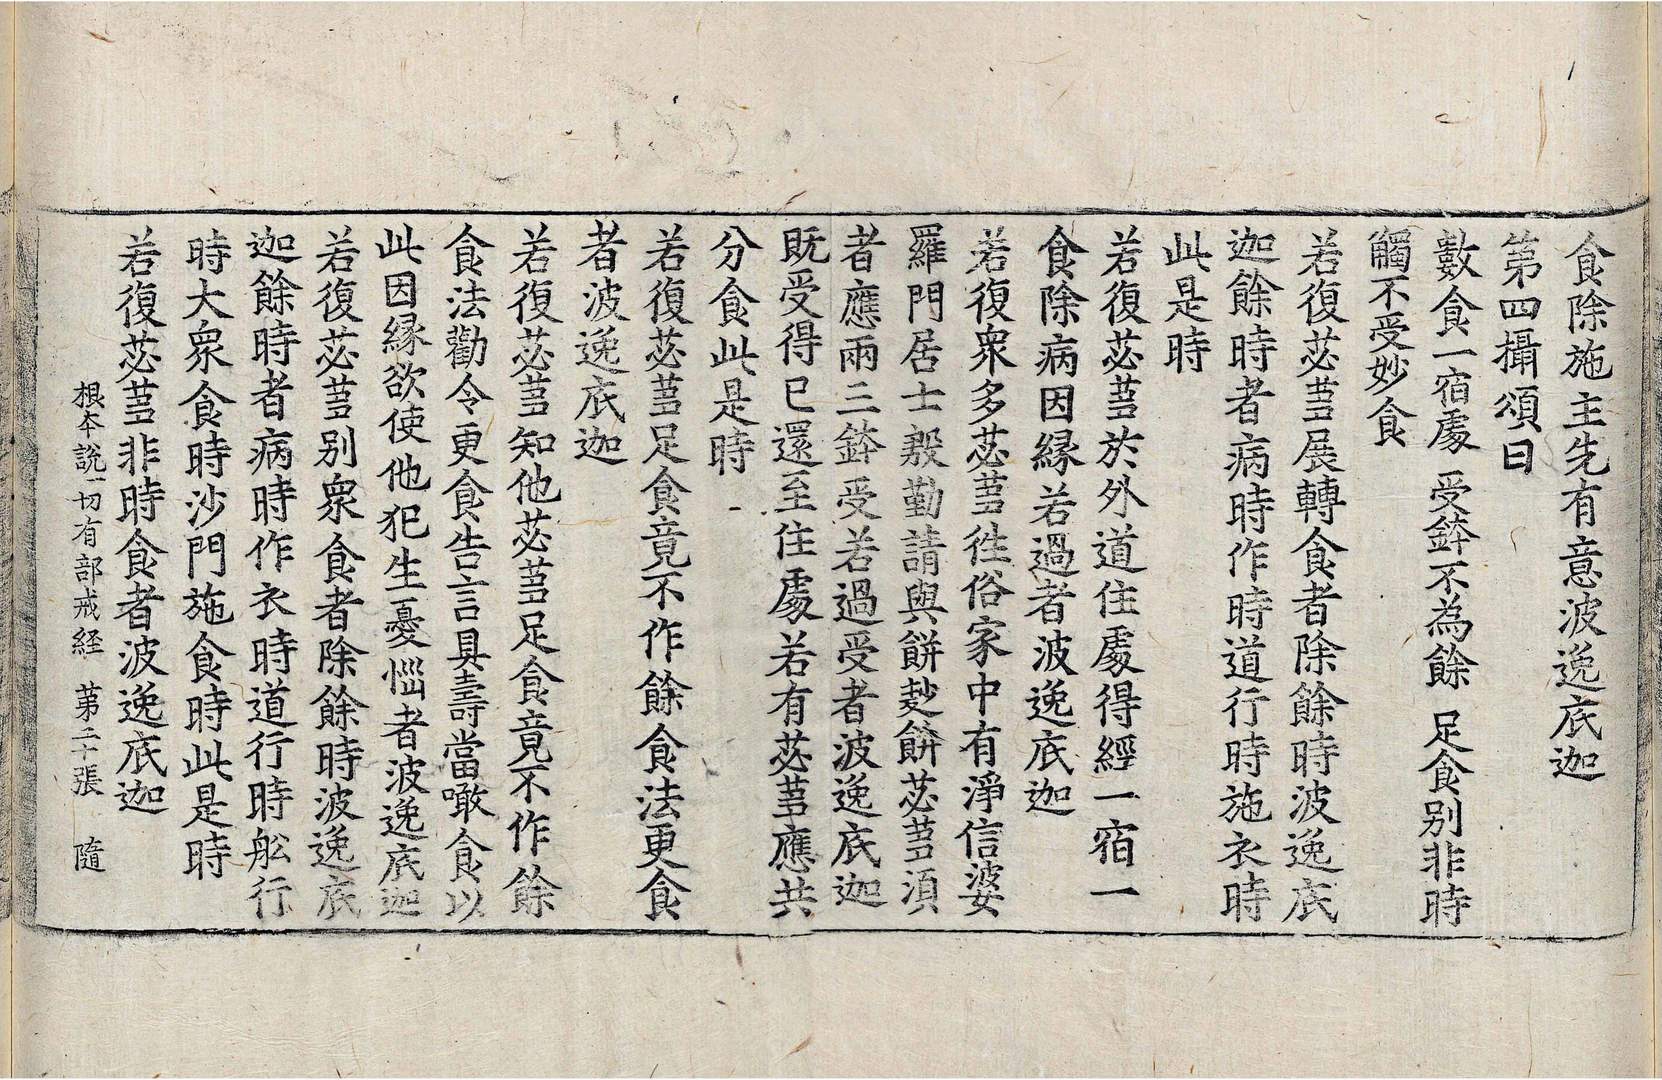 食除施主先有意波逸底迦
第四攝頌曰
數食一宿處 受鉢不為餘 足食別非時
觸不受妙食
若復苾蒭展轉食者除餘時波逸底
迦餘時者病時作時道行時施衣時
此是時
若復苾蒭於外道住處得經一宿一
食除病因緣若過者波逸底迦
若復衆多苾蒭徃俗家中有淨信婆
羅門居士殷勤請與餅麨餅苾蒭須
者應兩三鉢受若過受者波逸底迦
既受得已還至住處若有苾蒭應共
分食此是時
若復苾蒭足食竟不作餘食法更食
者波逸底迦
若復苾蒭知他苾蒭足食竟不作餘
食法勸令更食告言具壽當噉食以
此因緣欲使他犯生憂惱者波逸底迦
若復苾蒭別衆食者除餘時波逸底
迦餘時者病時作衣時道行時舩行
時大衆食時沙門施食時此是時
若復苾蒭非時食者波逸底迦
根本說一切有部戒経 第二十張 隨